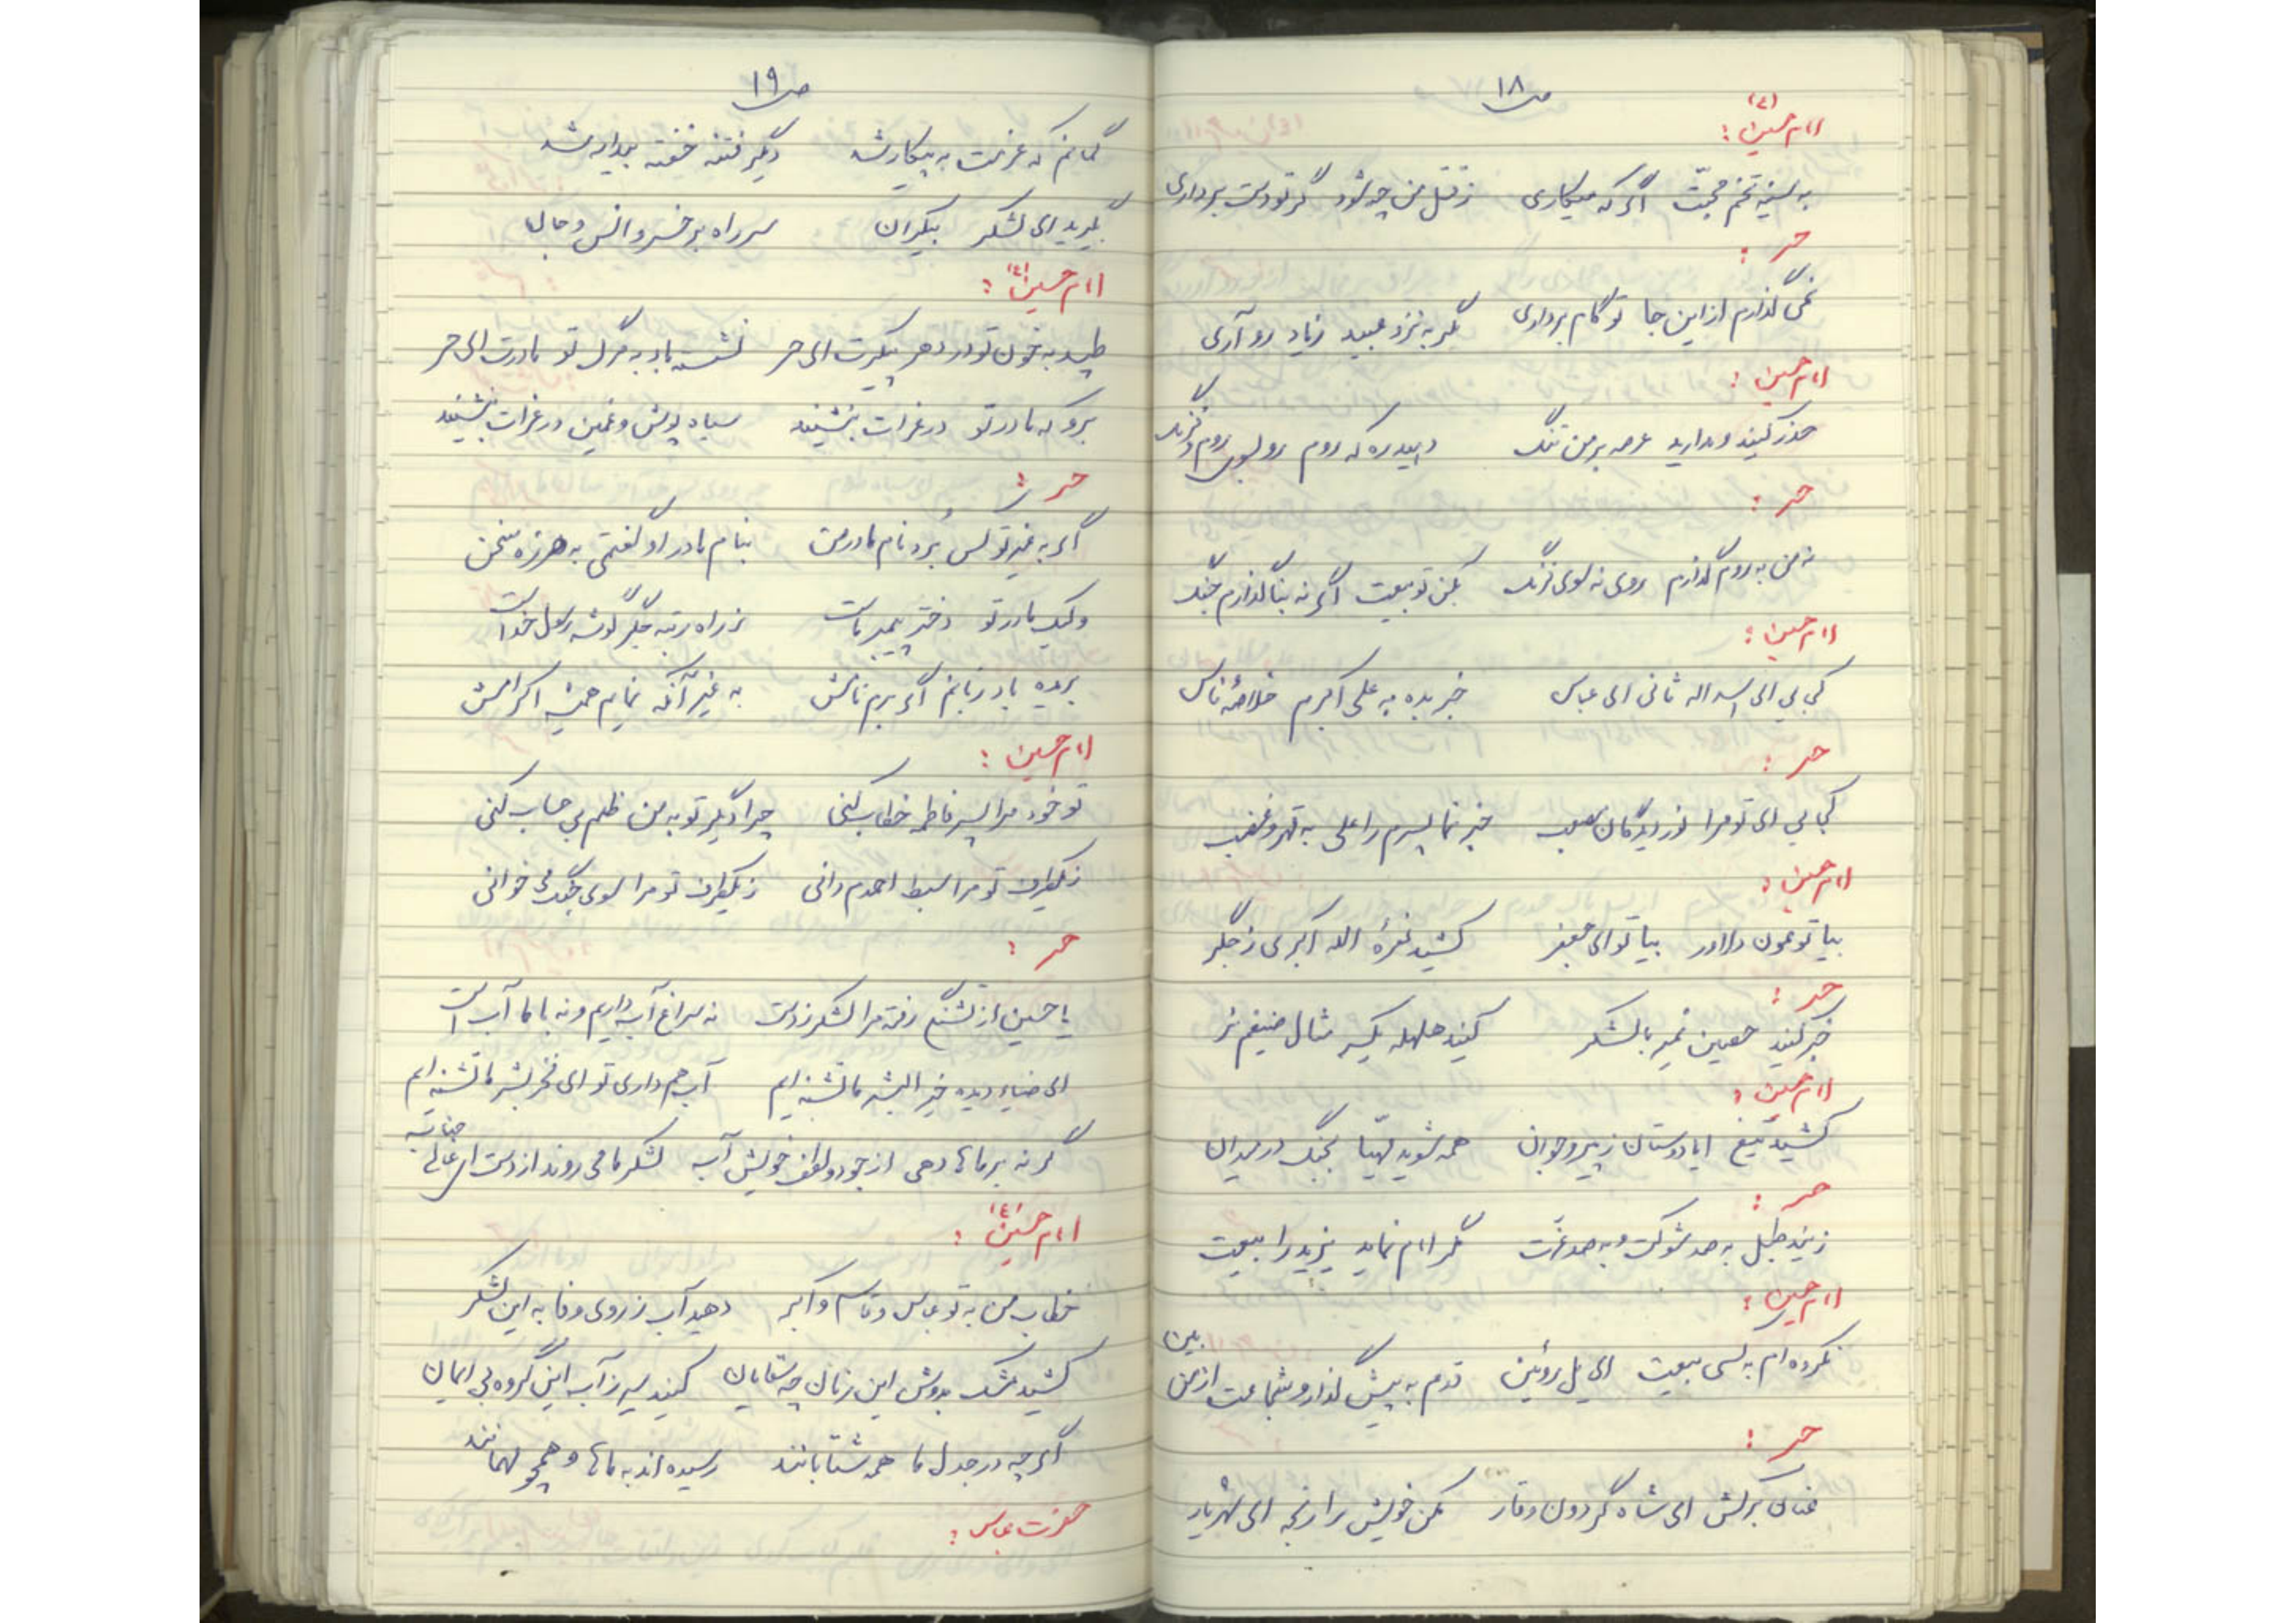 ص ۱۸
امام حسین (ع) :
به سینه تخم محبت اگر که میکاری زقتل من چه شود گر تو دست برداری
حر :
نمی گذارم از این جا تو گام برداری مگر به نزد عبید زیاد رو آری
امام حسین :
حذر کنید و مدارید عرصه بر من تنگ دهید ره که روم رو بسوی روم و فرنگ
حر :
نه من به روم گذارم روی نه سوی فرنگ بکن تو بیعت اگر نه بنا گذارم جنگ
امام حسین :
کجایی ای اسد اله ثانی ای عباس خبر بده به علی اکبرم خلاصه ناس
حر :
کجایی ای تو مرا نور دیدگان مصعب خبر نما پسرم را علی به قهر و غضب
امام حسین :
بیا تو عون دلاور بیا تو ای جعفر کشید نعرهٔ الله اکبری ز جگر
حر :
خبر کنید حصین نمیر با لشکر کنید هلهله یکسر مثال ضیغم نر
امام حسین :
کشید تیغ ایا دوستان ز پیر و جوان همه شوید مهیّا بجنگ در میدان
حر :
زنید طبل به صد شوکت و به صد عزّت مگر امام نماید یزید را بیعت
امام حسین :
نکرده ام به کسی بیعت ای یل روئین قدم به پیش گذار و شجاعت از من بین
حر :
عنان برکش ای شاه گردون وقار مکن خویش را رنجه ای شهریار
ص ۱۹
گمانم که عزمت به پیکار شد دگر فتنه خفته بیدار شد
بگیرید ای لشکر بیکران سر راه بر خسرو انس و جان
امام حسین (ع) :
طپید به خون تو در دهر پیکرت ای حر نشسته باد به مرگ تو مادرت ای حر
برو که مادر تو در عزات بنشیند سیاه پوش و غمین در عزات بنشیند
حر :
اگر به غیر تو کس بُرد نام مادر من بنام مادر او گفتمی به هرزه سخن
ولیک مادر تو دختر پیمبر ماست ز راه رتبه جگر گوشه رسول خداست
بریده باد زبانم اگر برم نامش به غیر آنکه نمایم همیشه اکرامش
امام حسین :
تو خود مرا پسر فاطمه خطاب کنی چرا دگر تو به من ظلم بی حساب کنی
ز یکطرف تو مرا سبط احمدم دانی ز یکطرف تو مرا سوی جنگ می خوانی
حر :
یا حسین از تشنگی رفته مرا لشکر ز دست نه سراغ آب داریم و نه با ما آب است
ای ضیاء دیده خیر البشر ما تشنه ایم آب هم داری تو ای فخر بشر ما تشنه ایم
گر نه بر ماها دهی از جود و لطف خویش آب لشکر ما می روند از دست ای عالی جناب
امام حسین (ع) :
خطاب من به تو عباس و قاسم و اکبر دهید آب ز روی وفا به این لشکر
کشید مشک بدوش این زمان چه سقایان کنید سیر ز آب این گروه بی ایمان
اگر چه در جدل ما همه شتابانند رسیده اند به ماها و همچو مهمانند
حضرت عباس :